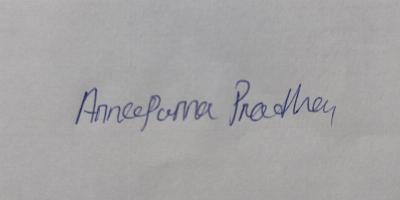 Anneeparna Pradhan